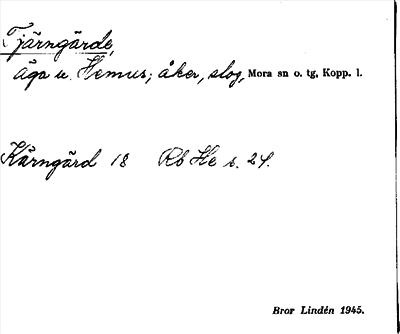 Tjärngärde,
äga u. Hemus; åker, slog, Mora sn o. tg, Kopp. l.
Kärngärd 18 Rö He s. 24.
Bror Lindén 1945.